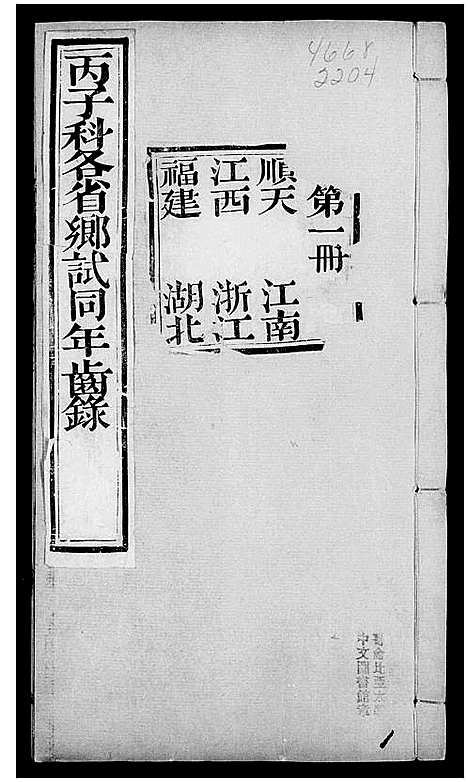 4668
2204
第一冊
順天 江南
江西 浙江
福建 湖北
丙子科各省鄉試同年齒錄
中文圖書館